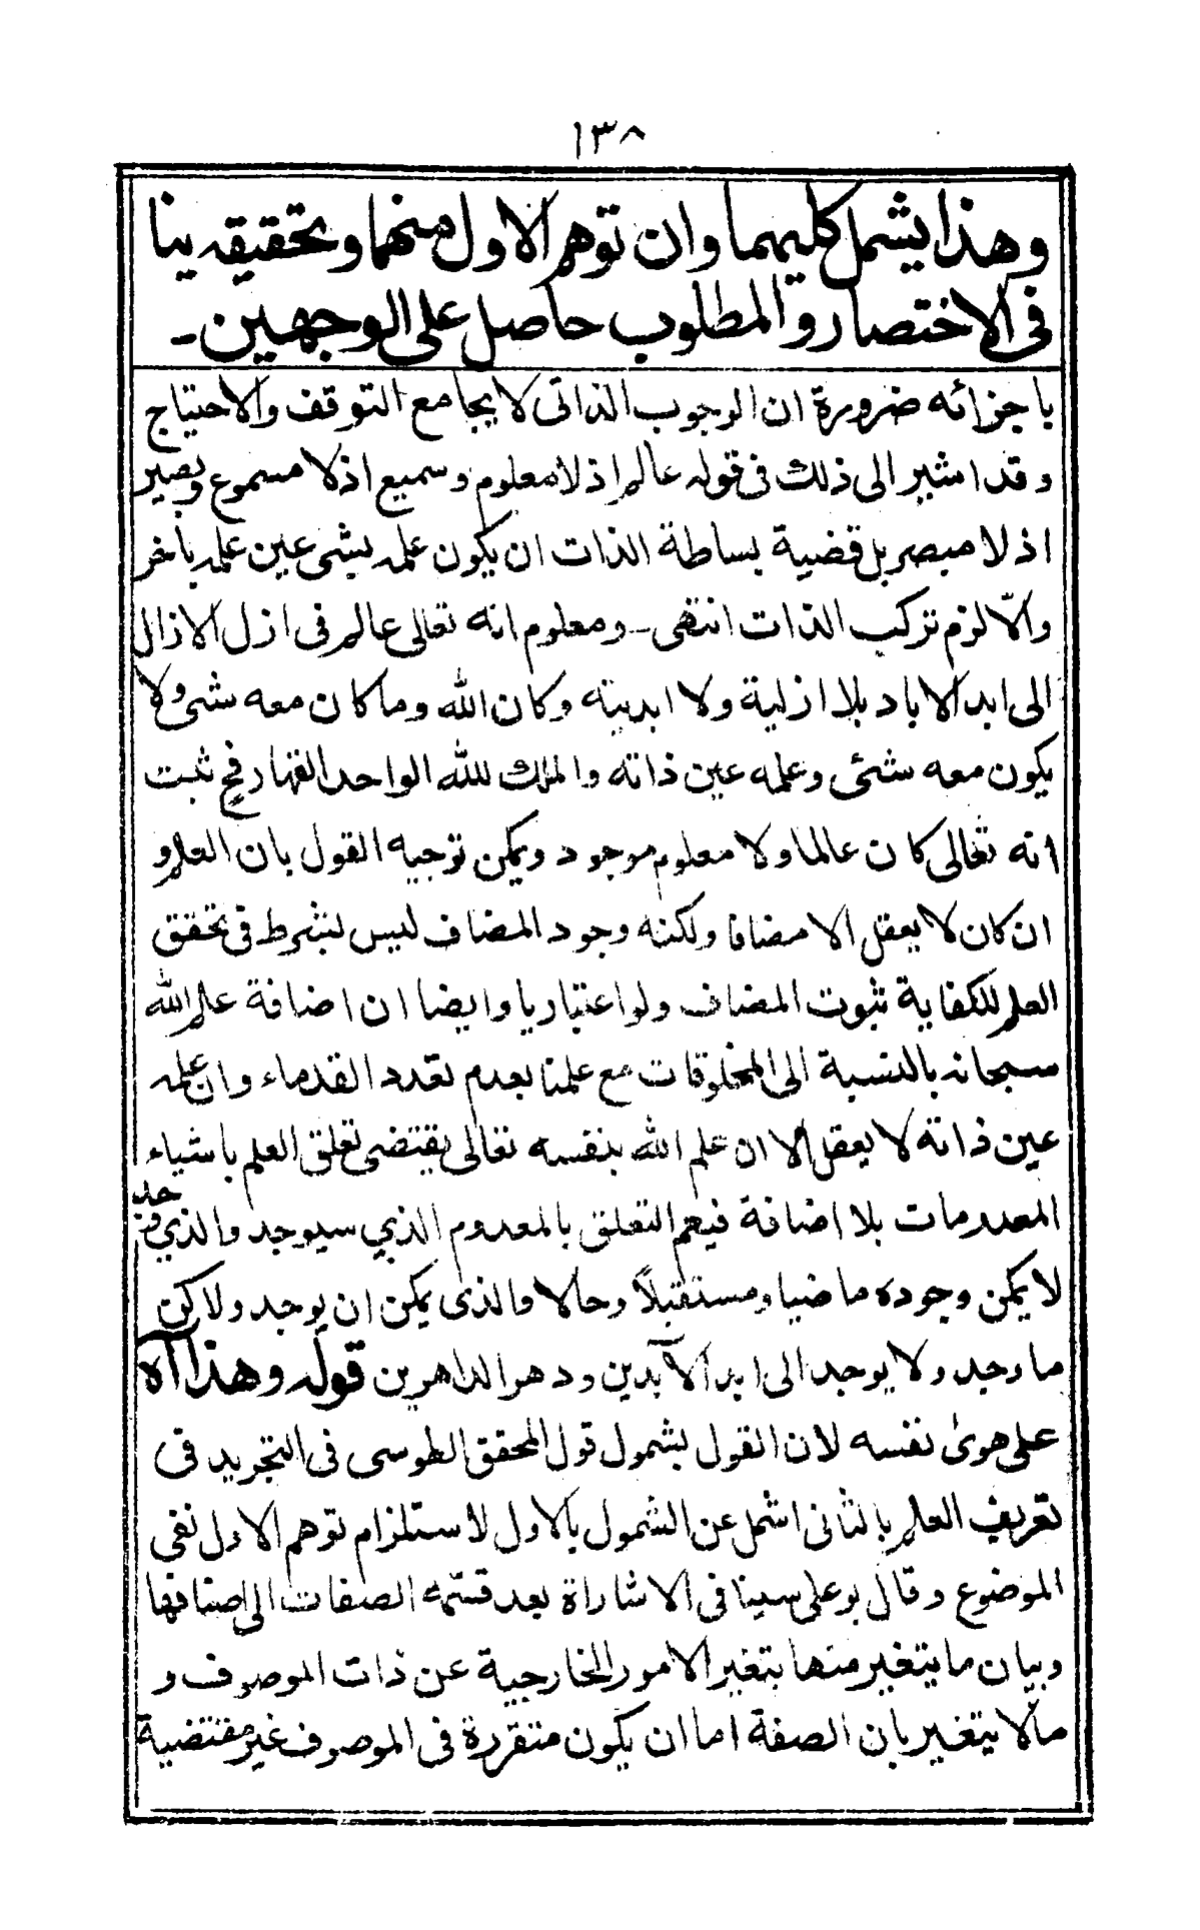 ١٣٨
وهذا يشمل كليهما وان توهم الاول منهما وتحقيقه ينا
فى الاختصار والمطلوب حاصل على الوجهين ـ
باجزائه ضرورة ان الوجوب الذاتى لا يجامع التوقف والاحتياج
وقد اشير الى ذلك فى قوله عالم اذ لا معلوم وسميع اذ لا مسموع وبصير
اذ لا مبصر بل قضية بساطة الذات ان يكون علمه بشى عين علمه بآخر
والّا لزم تركب الذات انتهى ـ ومعلوم انه تعالى عالم فى ازل الازال
الى ابد الاباد بلا ازلية ولا ابدية وكان الله وما كان معه شى ولا
يكون معه شئى وعلمه عين ذاته والملك لله الواحد القهار فح ثبت
انه تعالى كان عالما ولا معلوم موجود ويمكن توجيه القول بان العلم و
ان كان لا يعقل الا مضافا ولكنه وجود المضاف ليس بشرط فى تحقق
العلم للكفاية ثبوت المضاف ولو اعتباريا وايضا ان اضافة علم الله
سبحانه بالنسبة الى المخلوقات مع علمنا بعدم تعدد القدماء وان علمه
عين ذاته لا يعقل الا ان علم الله بنفسه تعالى يقتضى تعلق العلم باشياء
المعدومات بلا اضافة فيعم التعلق بالمعدوم الذي سيوجد والذي وجد
لا يمكن وجوده ماضيا ومستقبلاً وحالا والذى يمكن ان يوجد ولاكن
ما وجد ولا يوجد الى ابد الآبدين ودهر الداهرين قوله وهذا آه
على هوىٰ نفسه لان القول بشمول قول المحقق الطوسى فى التجريد فى
تعريف العلم بالثانى اشمل عن الشمول بالاول لاستلزام توهم الاول نفى
الموضوع وقال بوعلى سينا فى الاشاراة بعد قسمة الصفات الى اصنافها
وبيان ما يتغير منها بتغير الامور الخارجية عن ذات الموصوف و
مالا يتغير بان الصفة اما ان يكون متقررة فى الموصوف غير مقتضية